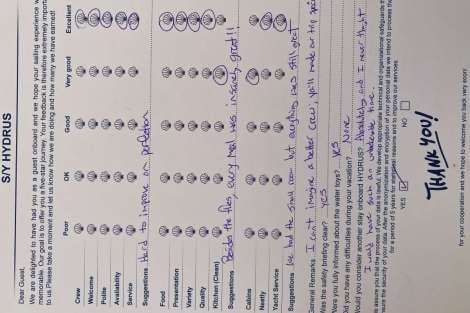 S/Y HYDRUS
Dear Guest,
We are delighted to have had you as a guest onboard and we hope your sailing experience w
memorable. Our goal is to offer you a five-star journey. Your feedback is therefore extremely importa
to us Please take a moment and let us know how we are doing and how many we have earned!
Poor OK Good Very good Excellent
Crew
Welcome
Polite
Availability
Service
Suggestions Hard to improve on perfection
Food
Presentation
Variety
Quality
Kitchen (Clean)
Suggestions Besides the flies, every meal was insanely great!!!
Cabins
Neatly
Yacht Service
Suggestions We had the small room but everything was still great
General Remarks I can't imagine a better crew; you'll made our trip special
Was the safety briefing clear? yes
Were you fully informed about the water toys? yes
Did you have any difficulties during your vacation? None
Would you consider another stay onboard HYDRUS? Absolutely and I never thought
I could have such an unbelievable time.
We assure you that the process of your data is lawful. We develop appropriate technical and organizational safeguards t
ensure the security of your data. After the anonymization and encryption of your personal data we intend to process the
for a period of 5 years for statistical reasons and to improve our services.
YES NO
THANK YOU!
for your cooperation and we hope to welcome you back very soon!